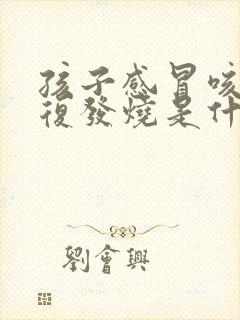 孩子感冒咳
復發燒是什
劉會興